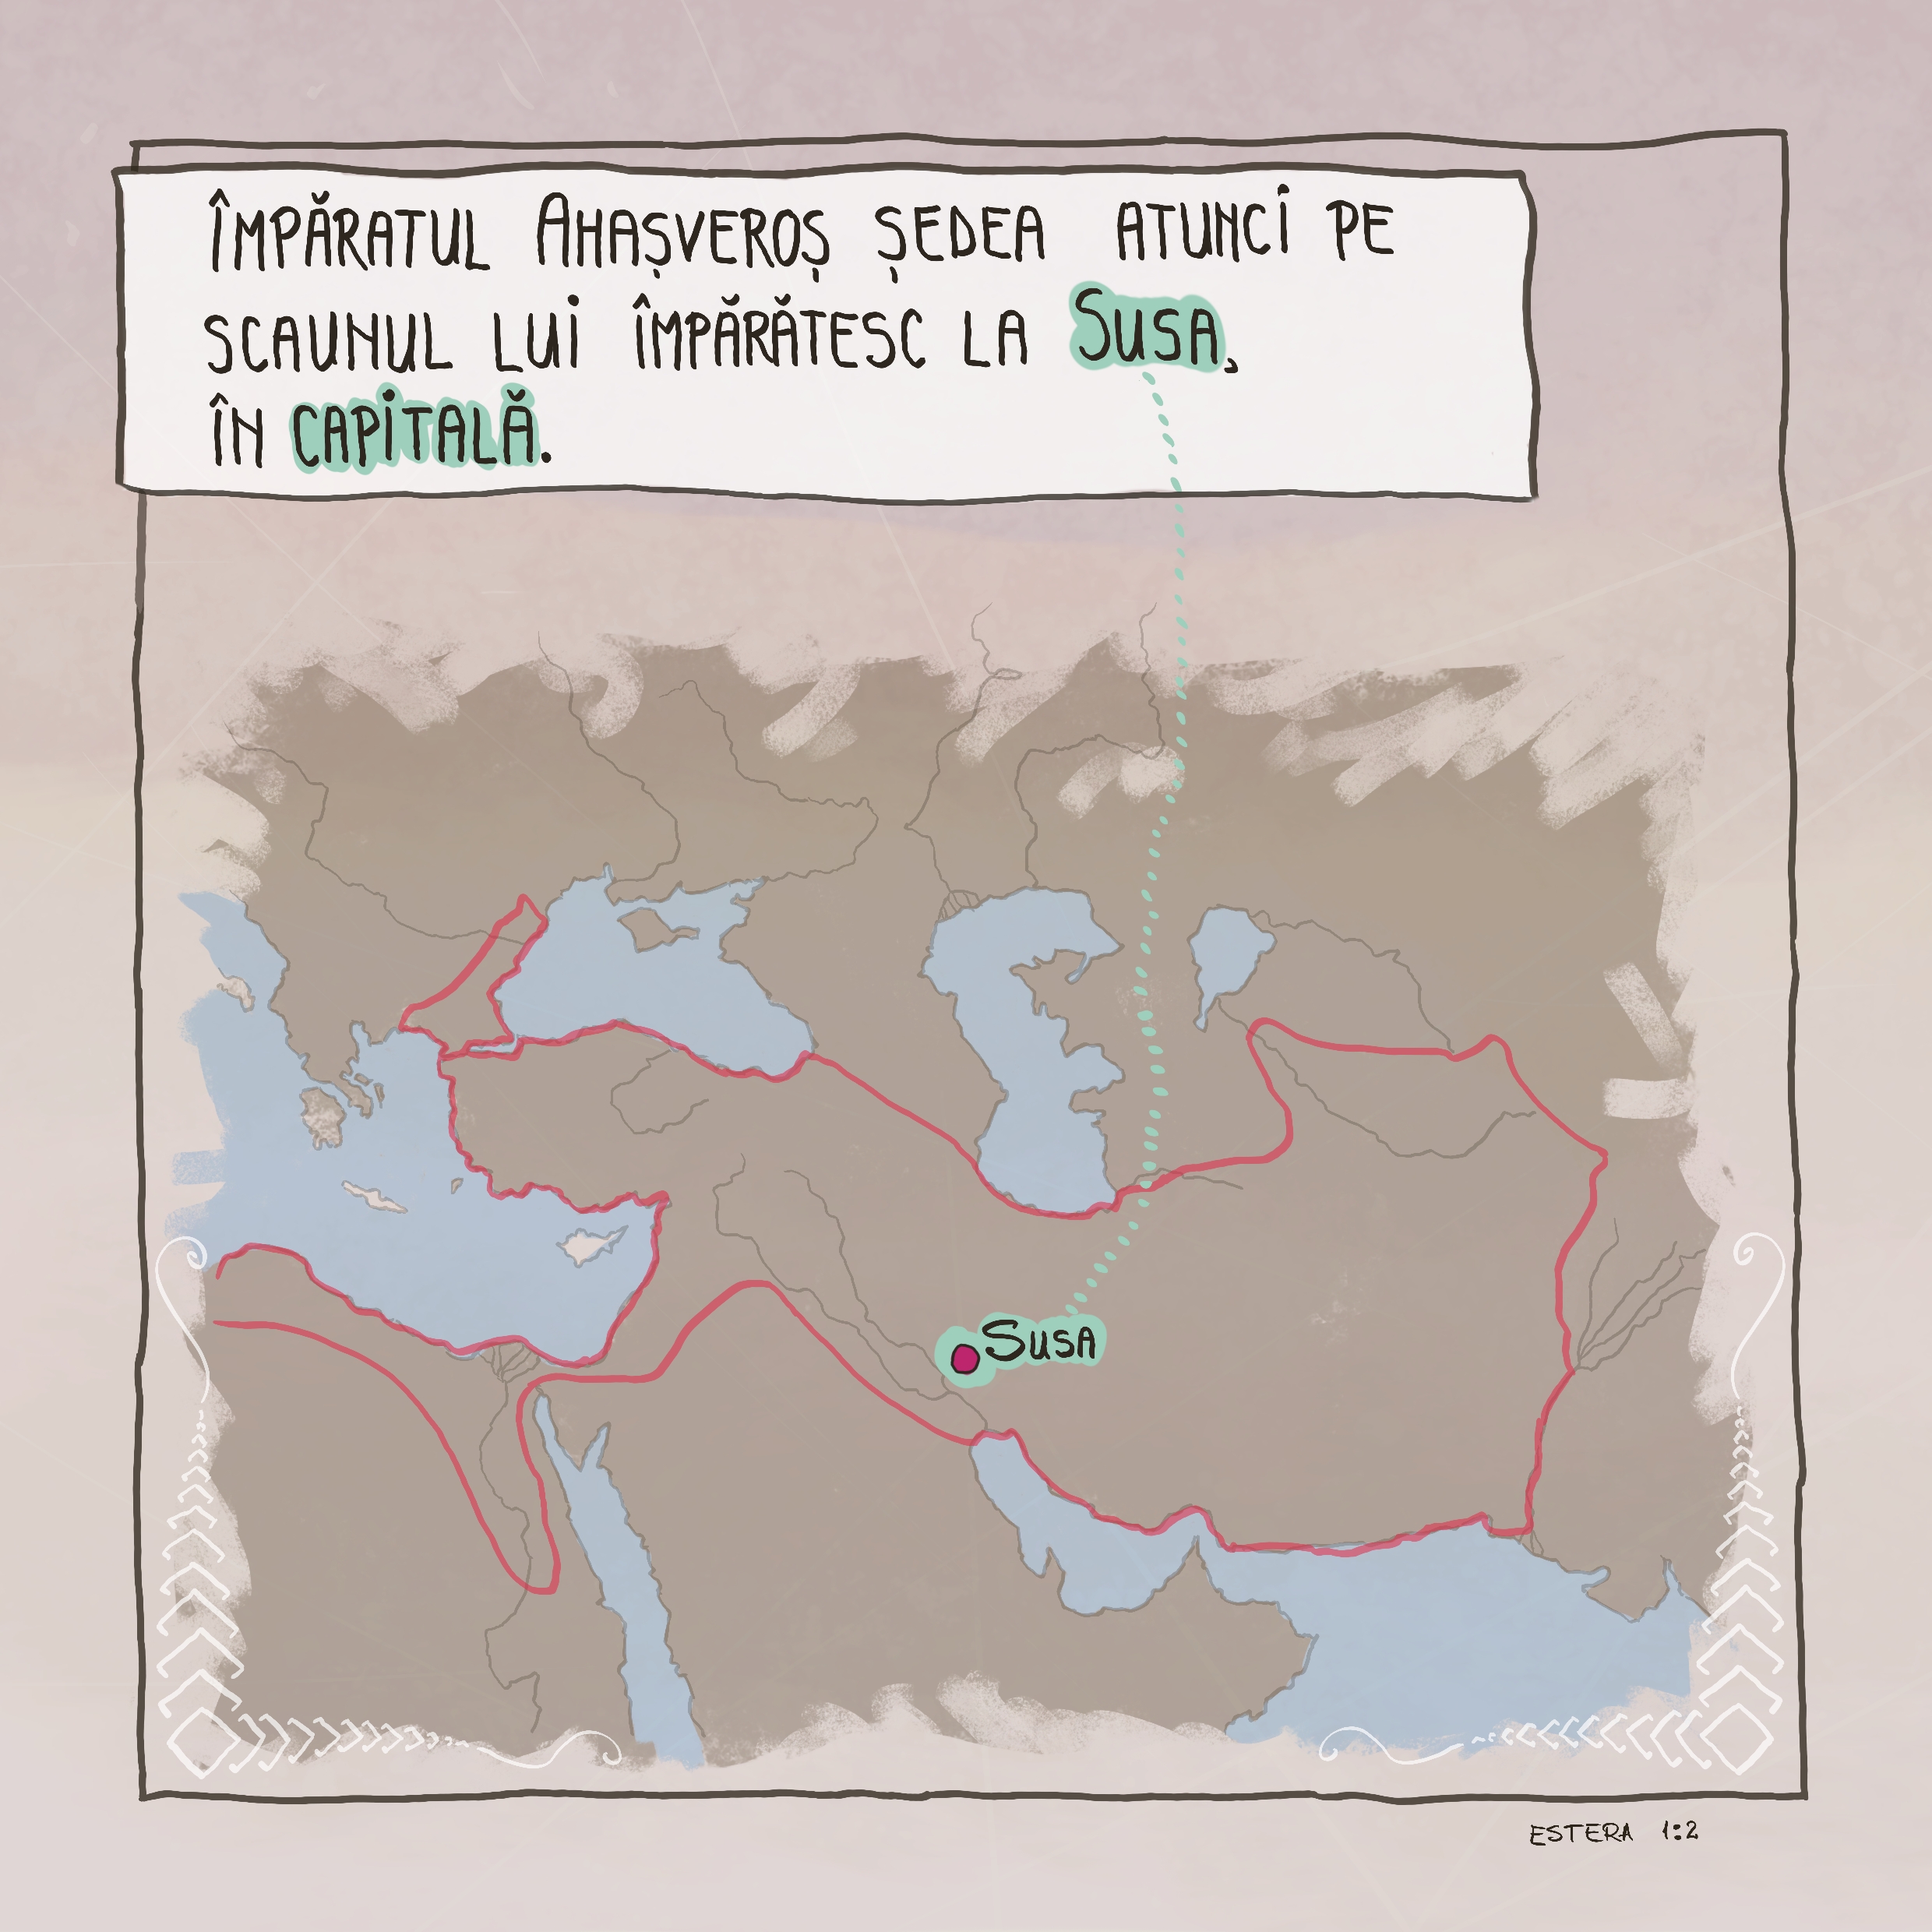 Împăratul Ahașveroș ședea atunci pe
scaunul lui împărătesc la Susa,
în capitală.
Susa
ESTERA 1:2